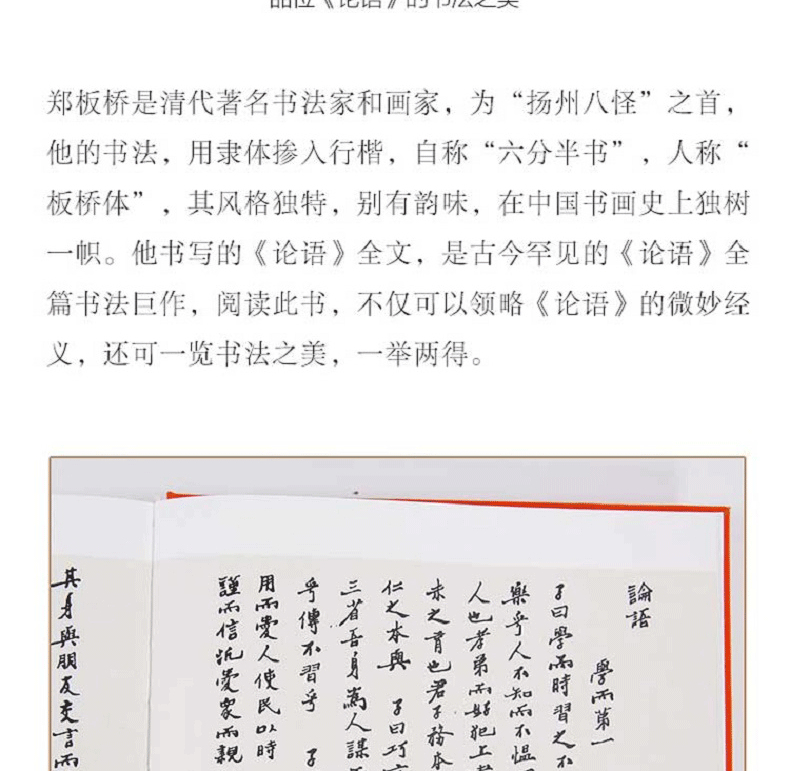 品位《论语》的书法之美
郑板桥是清代著名书法家和画家，为“扬州八怪”之首，
他的书法，用隶体掺入行楷，自称“六分半书”，人称“
板桥体”，其风格独特，别有韵味，在中国书画史上独树
一帜。他书写的《论语》全文，是古今罕见的《论语》全
篇书法巨作，阅读此书，不仅可以领略《论语》的微妙经
义，还可一览书法之美，一举两得。
論語
學而第一
子曰學而時習之不
樂乎人不知而不慍
人也孝弟而好犯上
未之有也君子務本
仁之本與 子曰巧
三省吾身爲人謀
乎傳不習乎 子
用而愛人使民以時
謹而信汎愛衆而親
其身與朋友交言而